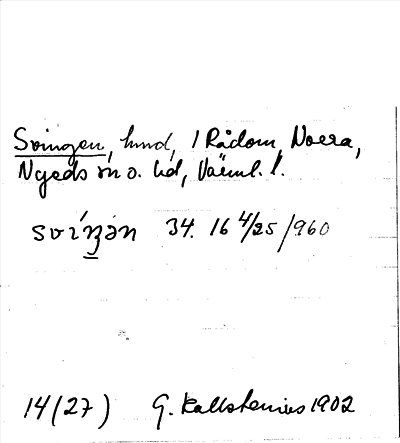 Svingen, hmd, 1 Rådom, Norra,
Nyeds sn o. hd, Värml. l.
svíŋən 34. 16 4/25/960
14(27) G. Kallstenius 1902